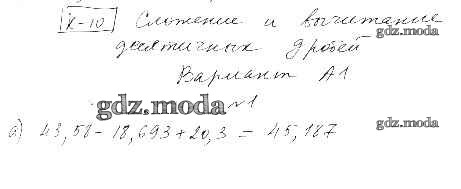 К-10 Сложение и вычитание
десятичных дробей
gdz.moda
Вариант А1
gdz.moda №1
а) 43,58 - 18,693 + 20,3 = 45,187 gdz.moda